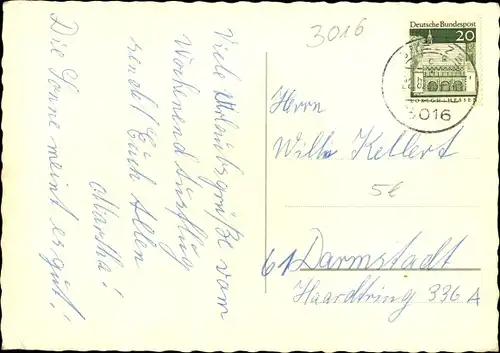 Viele Urlaubsgrüße vom
Wochenend Ausflug
sendet Euch Allen
Martha!
Die Sonne meint es gut!
3016
Deutsche Bundespost
20
LORSCH/HESSEN
3016
Herrn
Willi Kellert
5e
61 Darmstadt
Haardtring 336 A